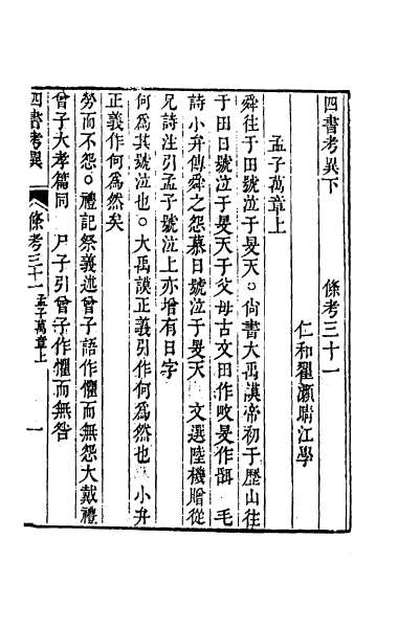 四書考異下　條考三十一
仁和翟灝晴江學
孟子萬章上
舜往于田號泣于旻天○尙書大禹謨帝初于歷山往
于田日號泣于旻天于父母古文田作畋旻作㫗　毛
詩小弁傳舜之怨慕日號泣于旻天　文選陸機贈從
兄詩注引孟子號泣上亦增有日字
何爲其號泣也○大禹謨正義引作何爲然也　小弁
正義作何爲然矣
勞而不怨○禮記祭義述曾子語作懼而無怨大戴禮
曾子大孝篇同　尸子引曾子作懼而無咎
四書考異　條考三十一　孟子萬章上　一